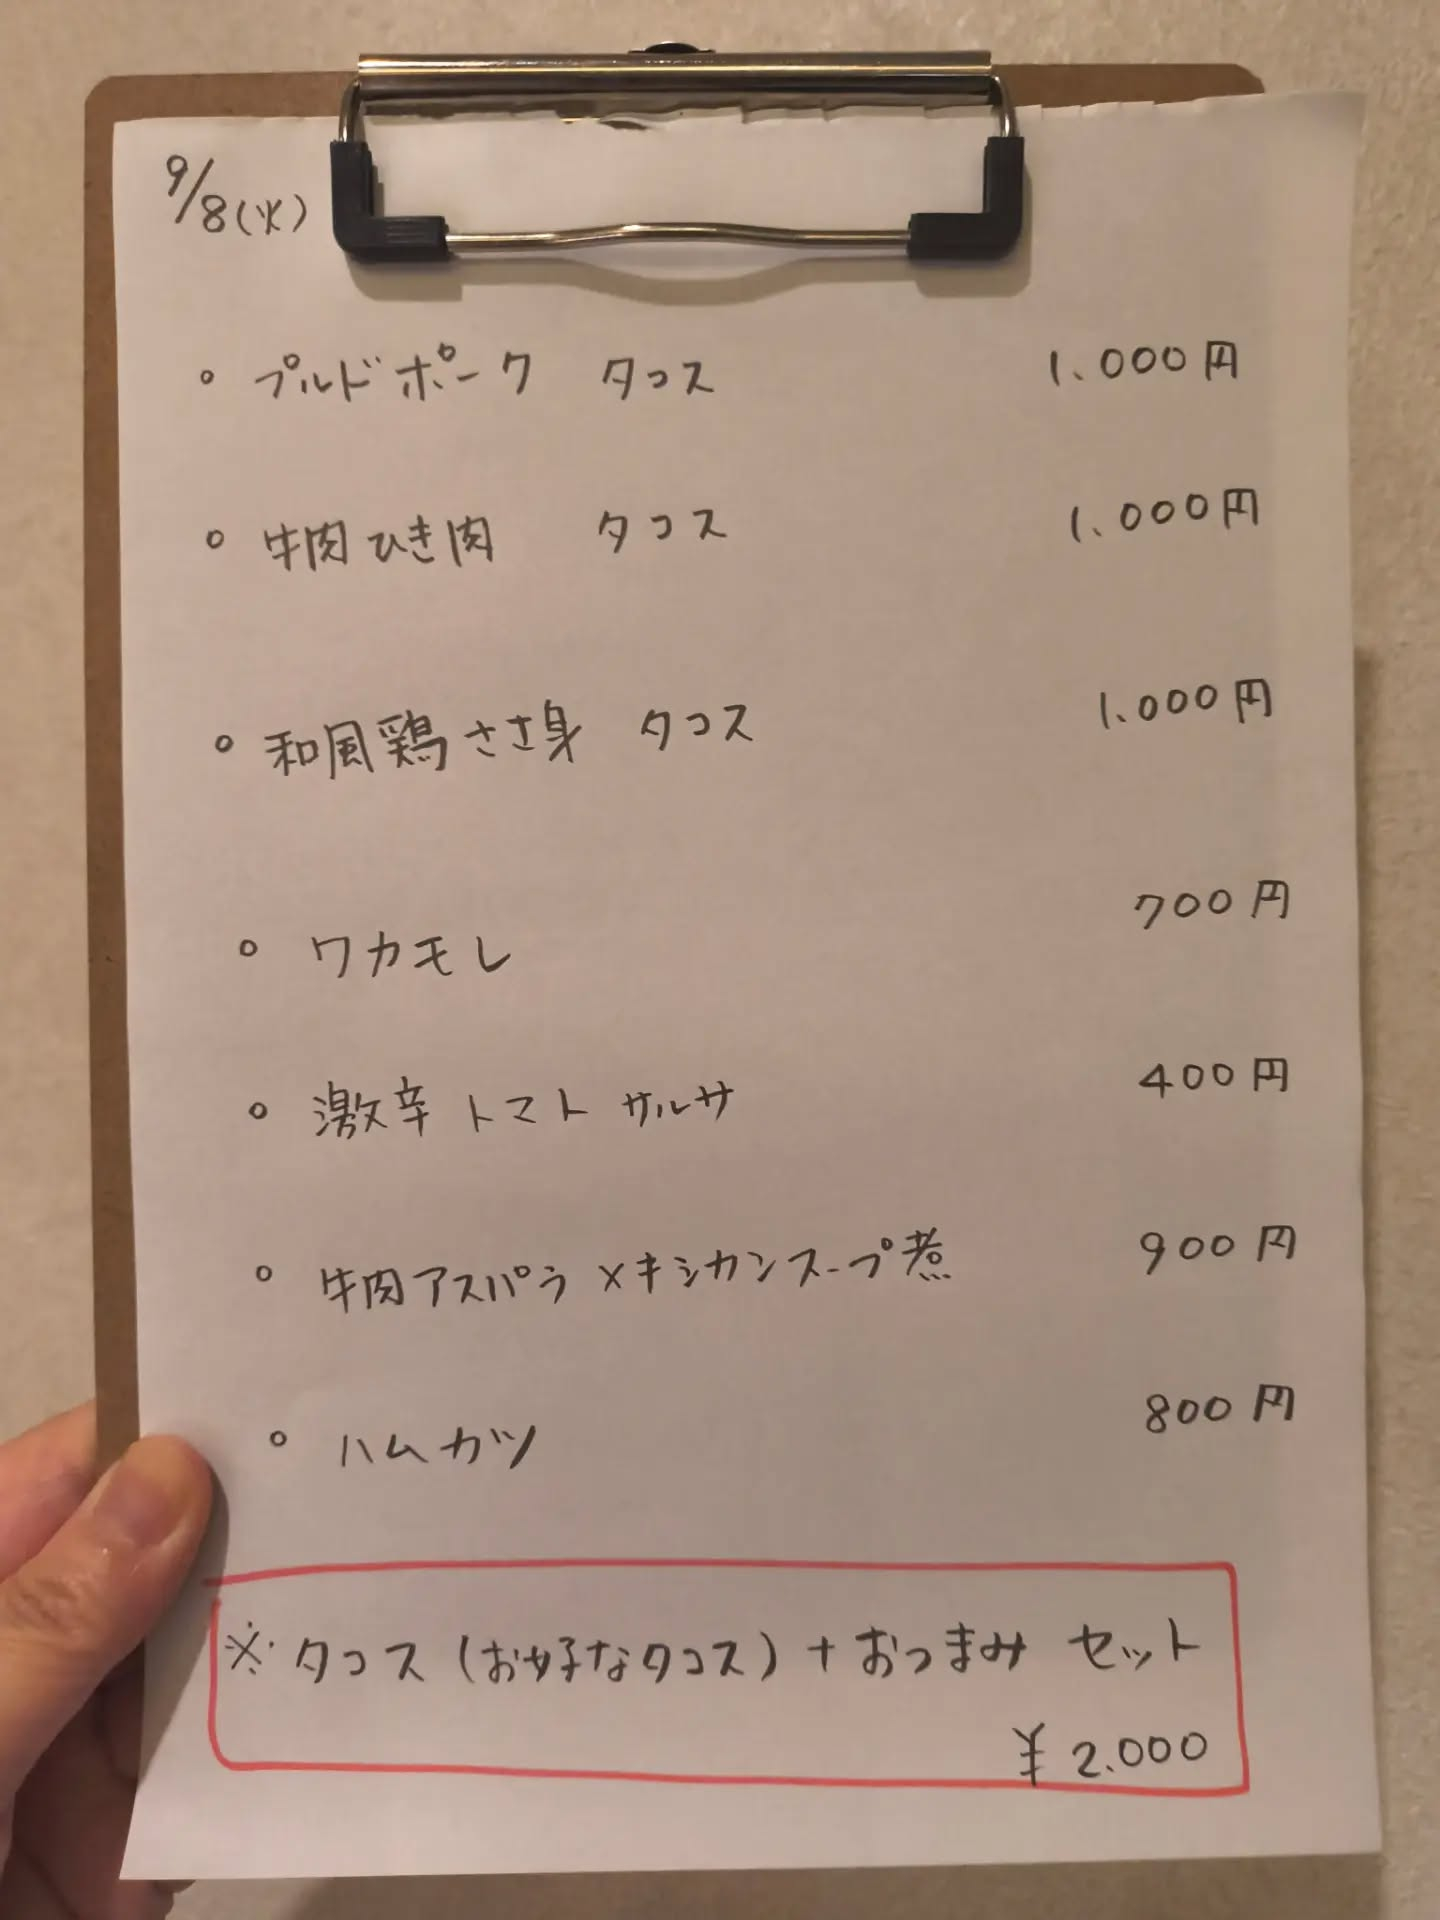 9/8(火)
。プルドポーク タコス 1.000円
。牛肉ひき肉 タコス 1.000円
。和風鶏ささ身 タコス 1.000円
。ワカモレ 700円
。激辛トマトサルサ 400円
。牛肉アスパラメキシカンスープ煮 900円
。ハムカツ 800円
※タコス(お好きなタコス)+おつまみ セット
¥2.000